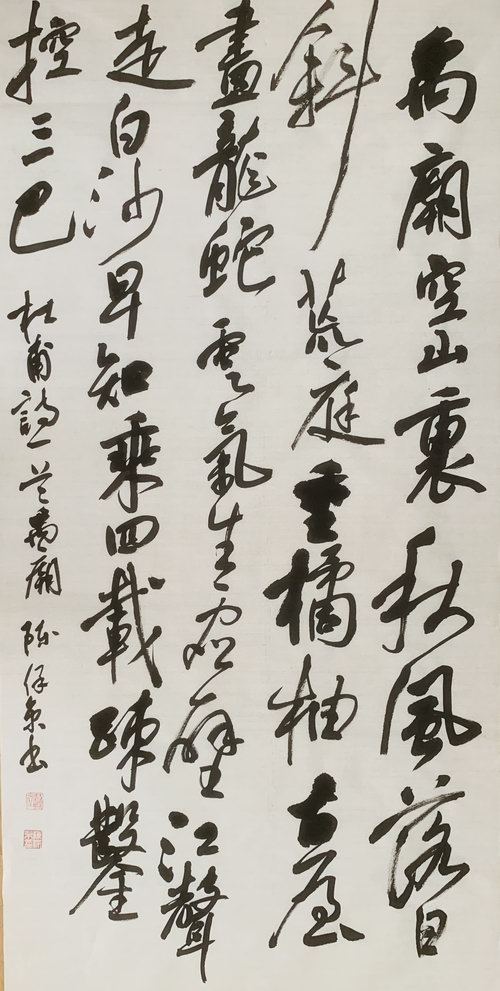 禹廟空山裏秋風落日
斜荒庭垂橘柚古屋
畫龍蛇雲氣生虛壁江聲
走白沙早知乘四載疎鑿
控三巴
杜甫詩一首禹廟 陈书